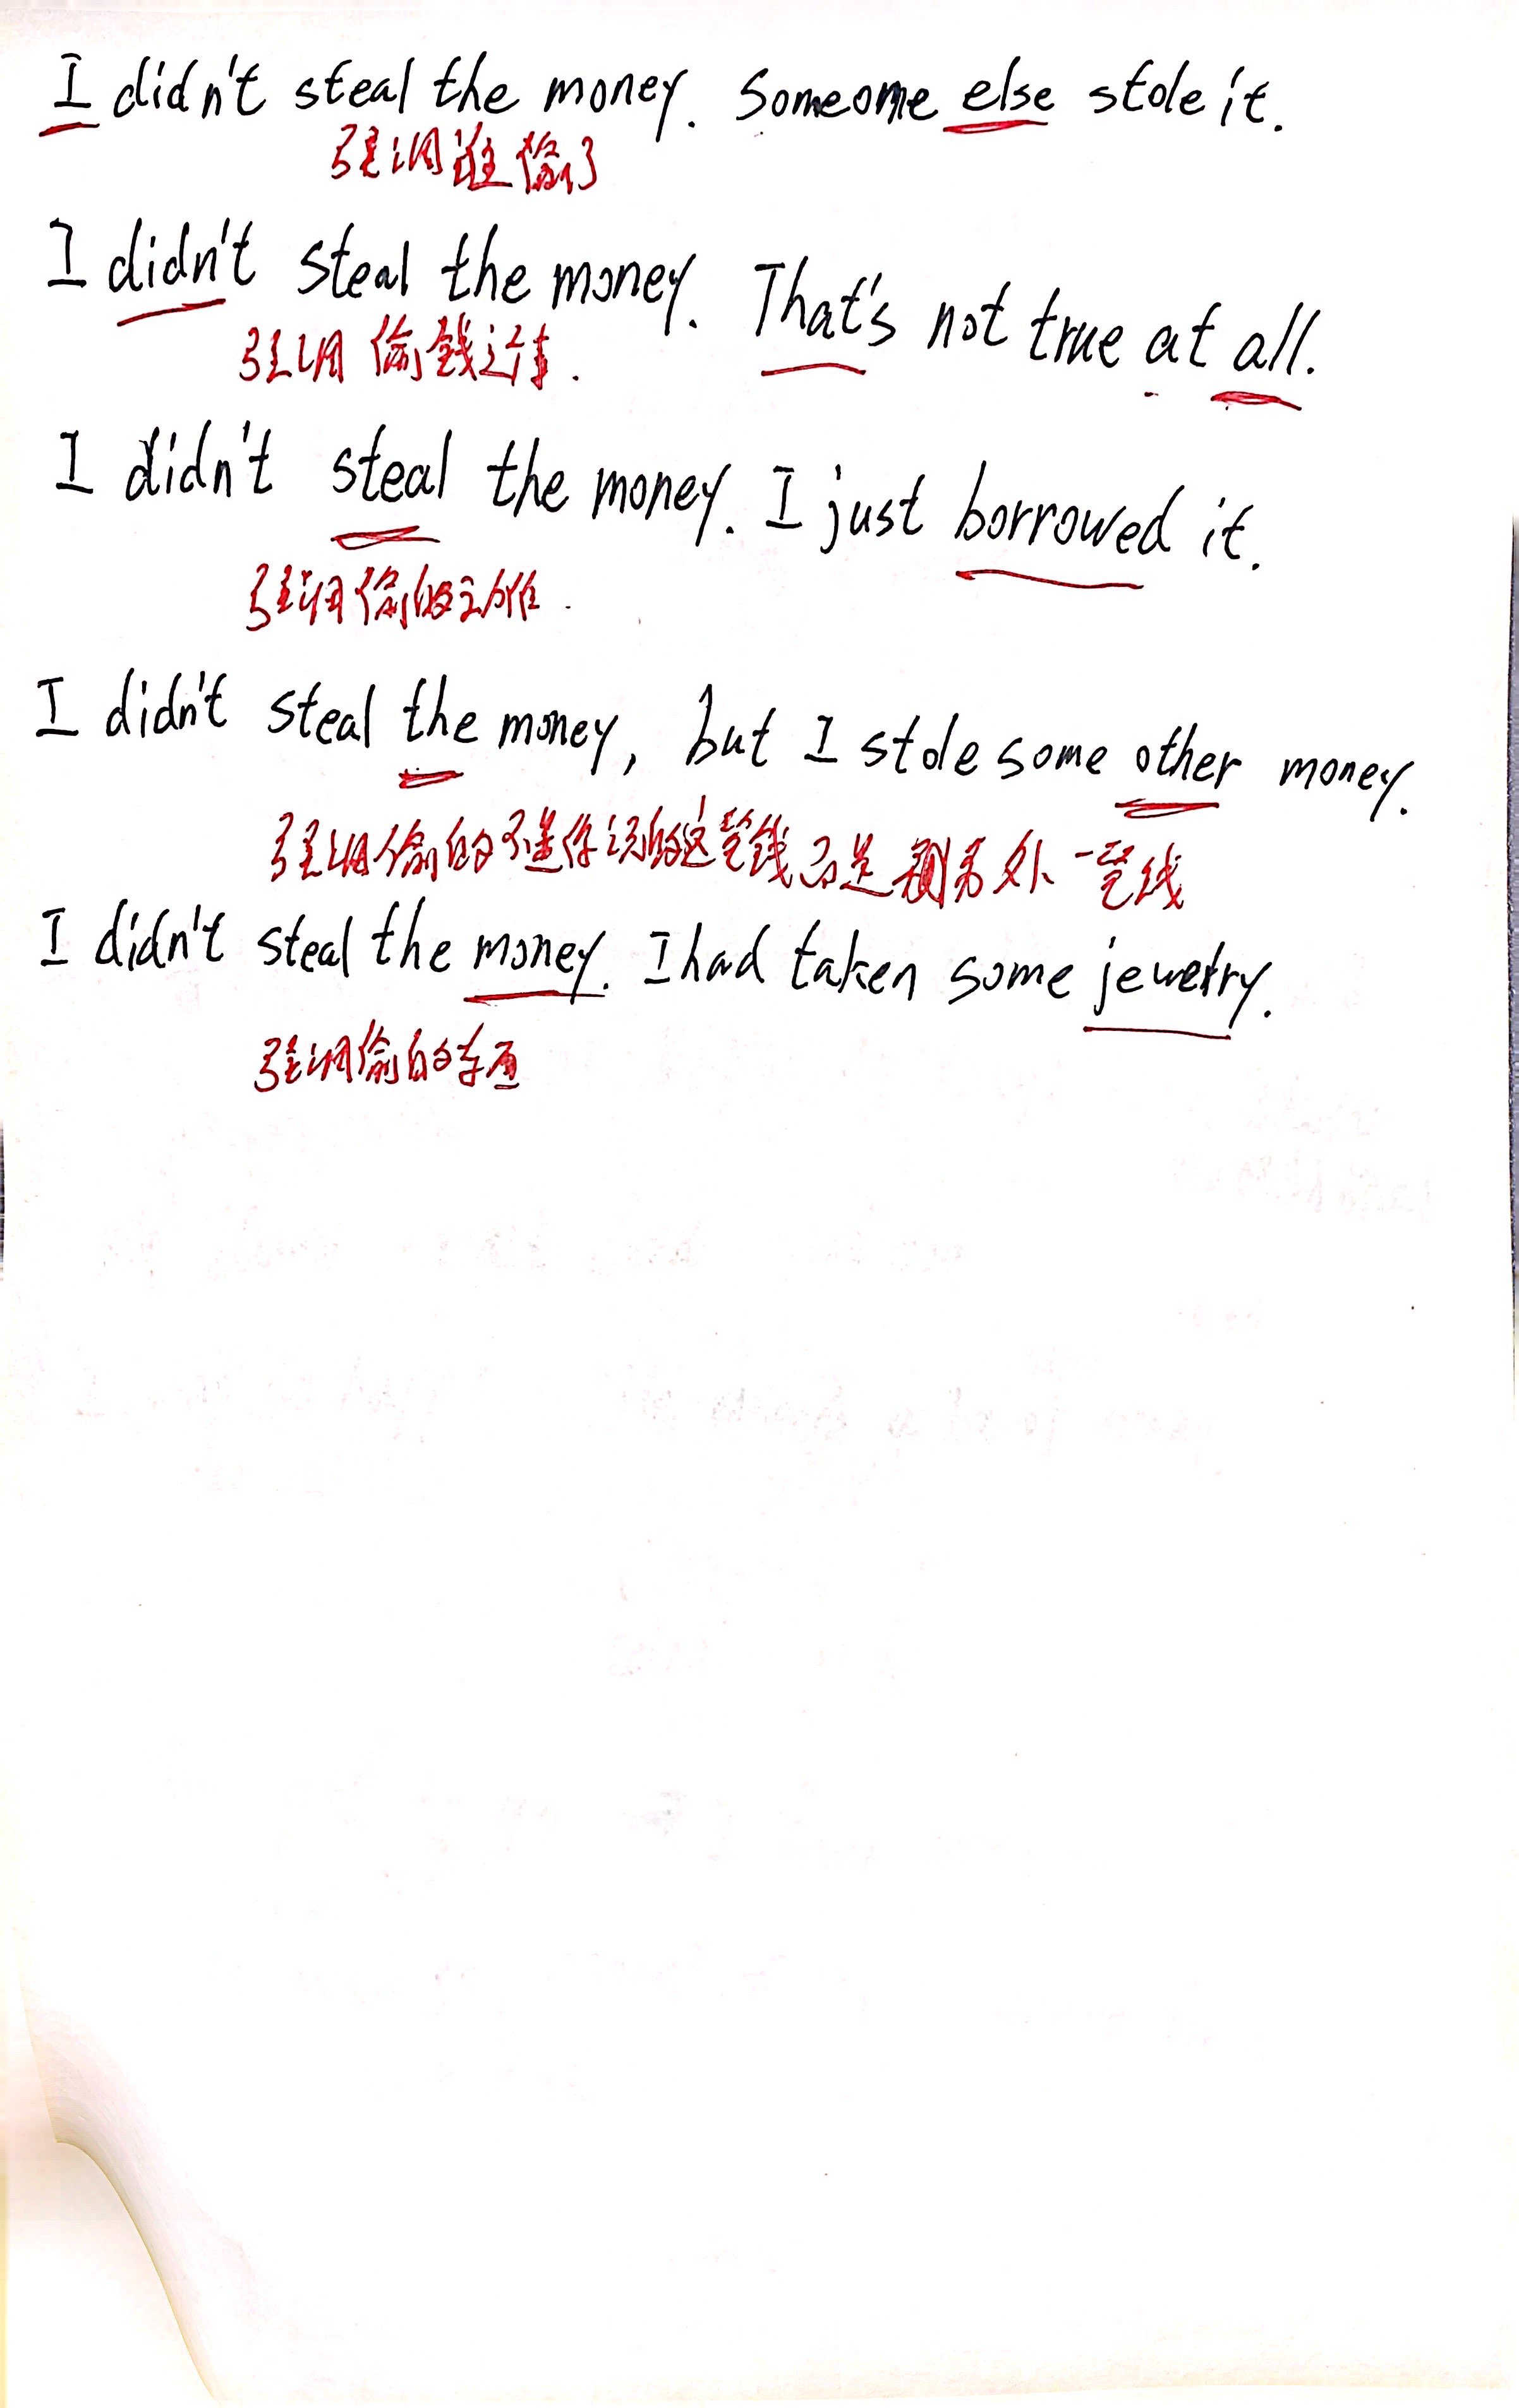 I didn't steal the money. Someome else stole it.
强调谁偷了
I didn't steal the money. That's not true at all.
强调偷钱这件事.
I didn't steal the money. I just borrowed it.
强调偷的动作.
I didn't steal the money, but I stole some other money.
强调偷的不是你说的这笔钱而是另外一笔钱
I didn't steal the money. I had taken some jewelry.
强调偷的东西